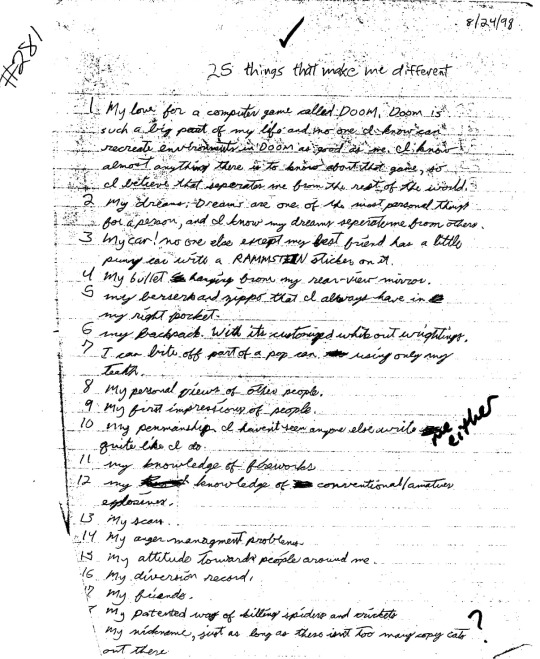 8/24/98
#281
25 things that make me different
1 My love for a computer game called DOOM. Doom is
such a big part of my life and no one I know can
recreate environments in DOOM as good as me. I know
almost anything there is to know about that game, so
I believe that seperates me from the rest of the world.
2 My dreams. Dreams are one of the most personal things
for a person, and I know my dreams seperate me from others.
3 My car! no one else except my best friend has a little
puny car with a RAMMSTEIN sticker on it.
4 My bullet hanging from my rear-view mirror.
5 my berserk and zippo that I always have in
my right pocket.
6 my backpack. With its customized white out wrightings.
7 I can bite off part of a pop can using only my
teath.
8 My personal views of other people.
9 My first impressions of people.
10 my penmanship. I havent seen anyone else write
quite like I do.
me either
11 my knowledge of fireworks
12 my knowledge of conventional/amature
explosives.
13 My scars..
14 My anger managment problems.
15 my attitude towards people around me.
16 My diversion record.
17 My friends.
My patented way of killing spiders and crickets
?
My nickname, just as long as there isnt too many copy cats
out there